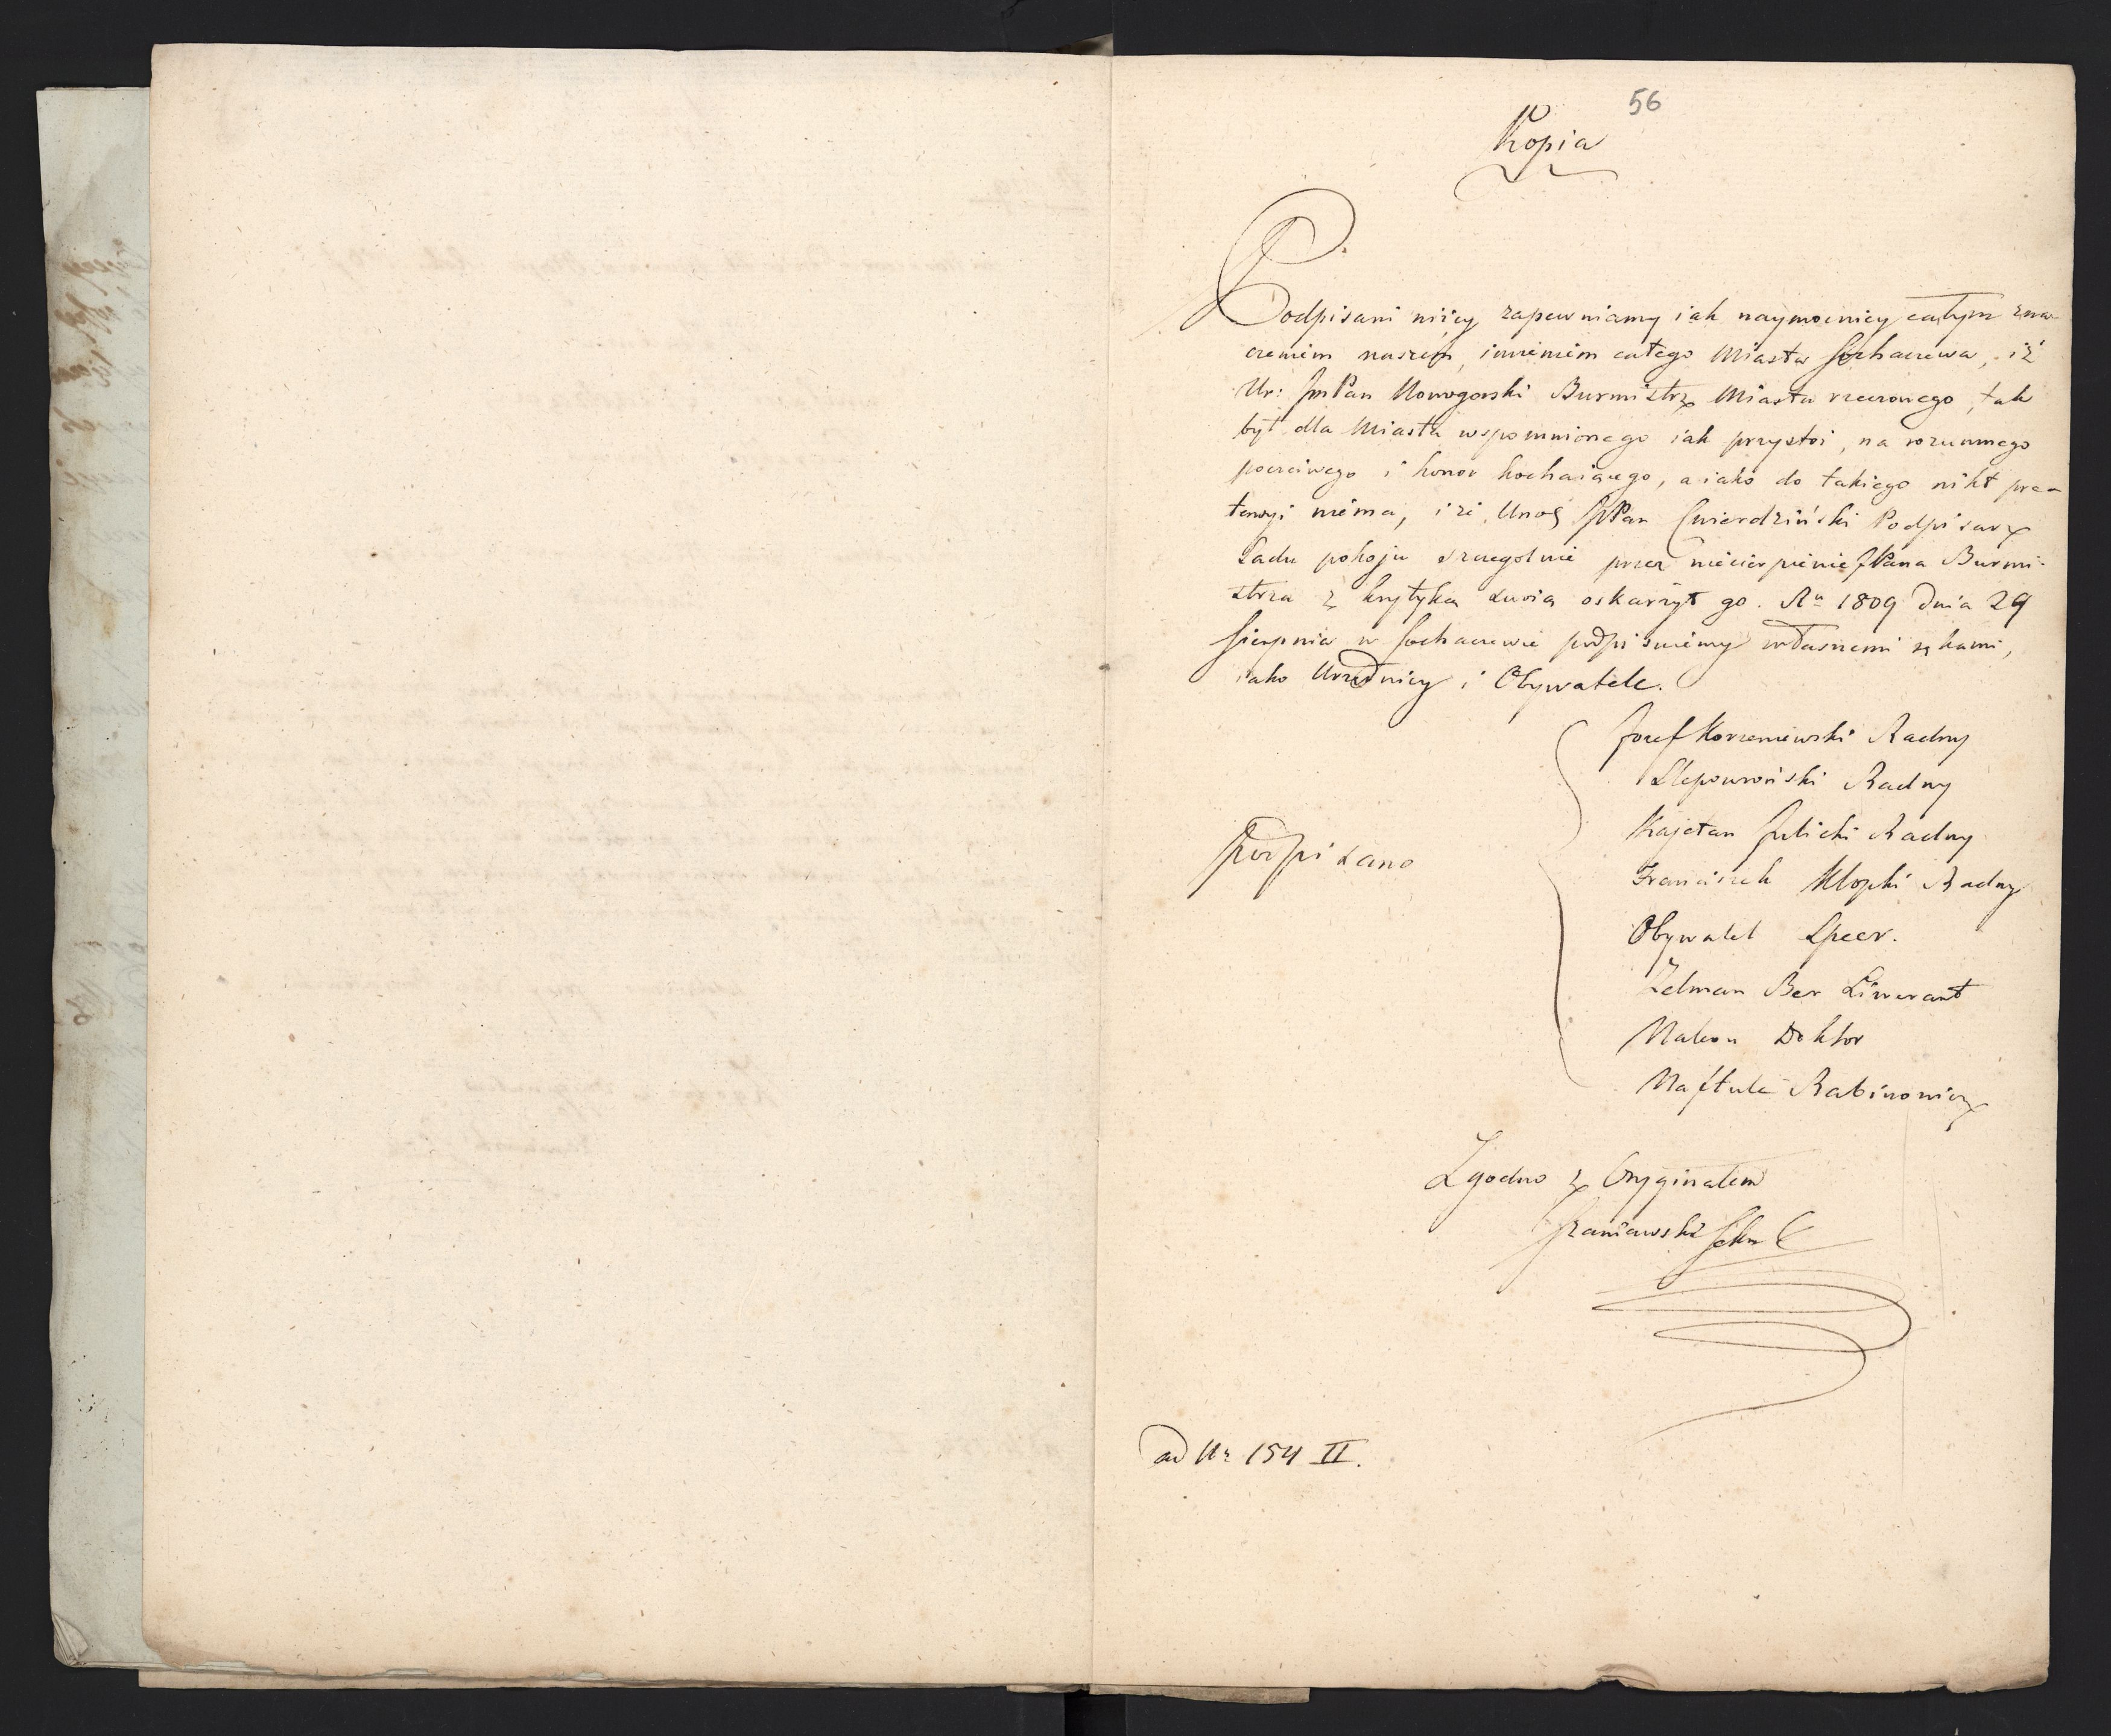 56
Kopia
Podpisani niżcy zapewniamy iak naymocnicy całym zna-
czeniem naszem, imieniem całego Miasta Sochaczewa, iż
Ur: JmPan Nowogorski Burmistrz Miasta rzeczonego, tak
był dla Miasta wspomnionego iak przystoi, na rozumnego
poczciwego i honor kochaiącego, a iako do takiego nikt pre-
tensyi niema, i że Unoś JPan Cwierdziński Podpisarz
Sadu pokoju szczegolnie przez niecierpienie JPana Burmi-
strza z krytyką swoią oskarżył go. Ru 1809 Dnia 29
Sierpnia w Sochaczewie podpisuiemy własnemi rękami,
iako Urzędnicy i Obywatele.
Jozef Korzeniewski Radny
Slepowroński Radny
Kajetan Julicki Radny
podpisano
Franciszek Klopki Radny
Obywatel Speer.
Zelman Ber Liwerant
Makon Doktor
Naftula Rabinowicz
Zgodno z Oryginałem
Szaniawski Sekr
ad Nr 154 II.